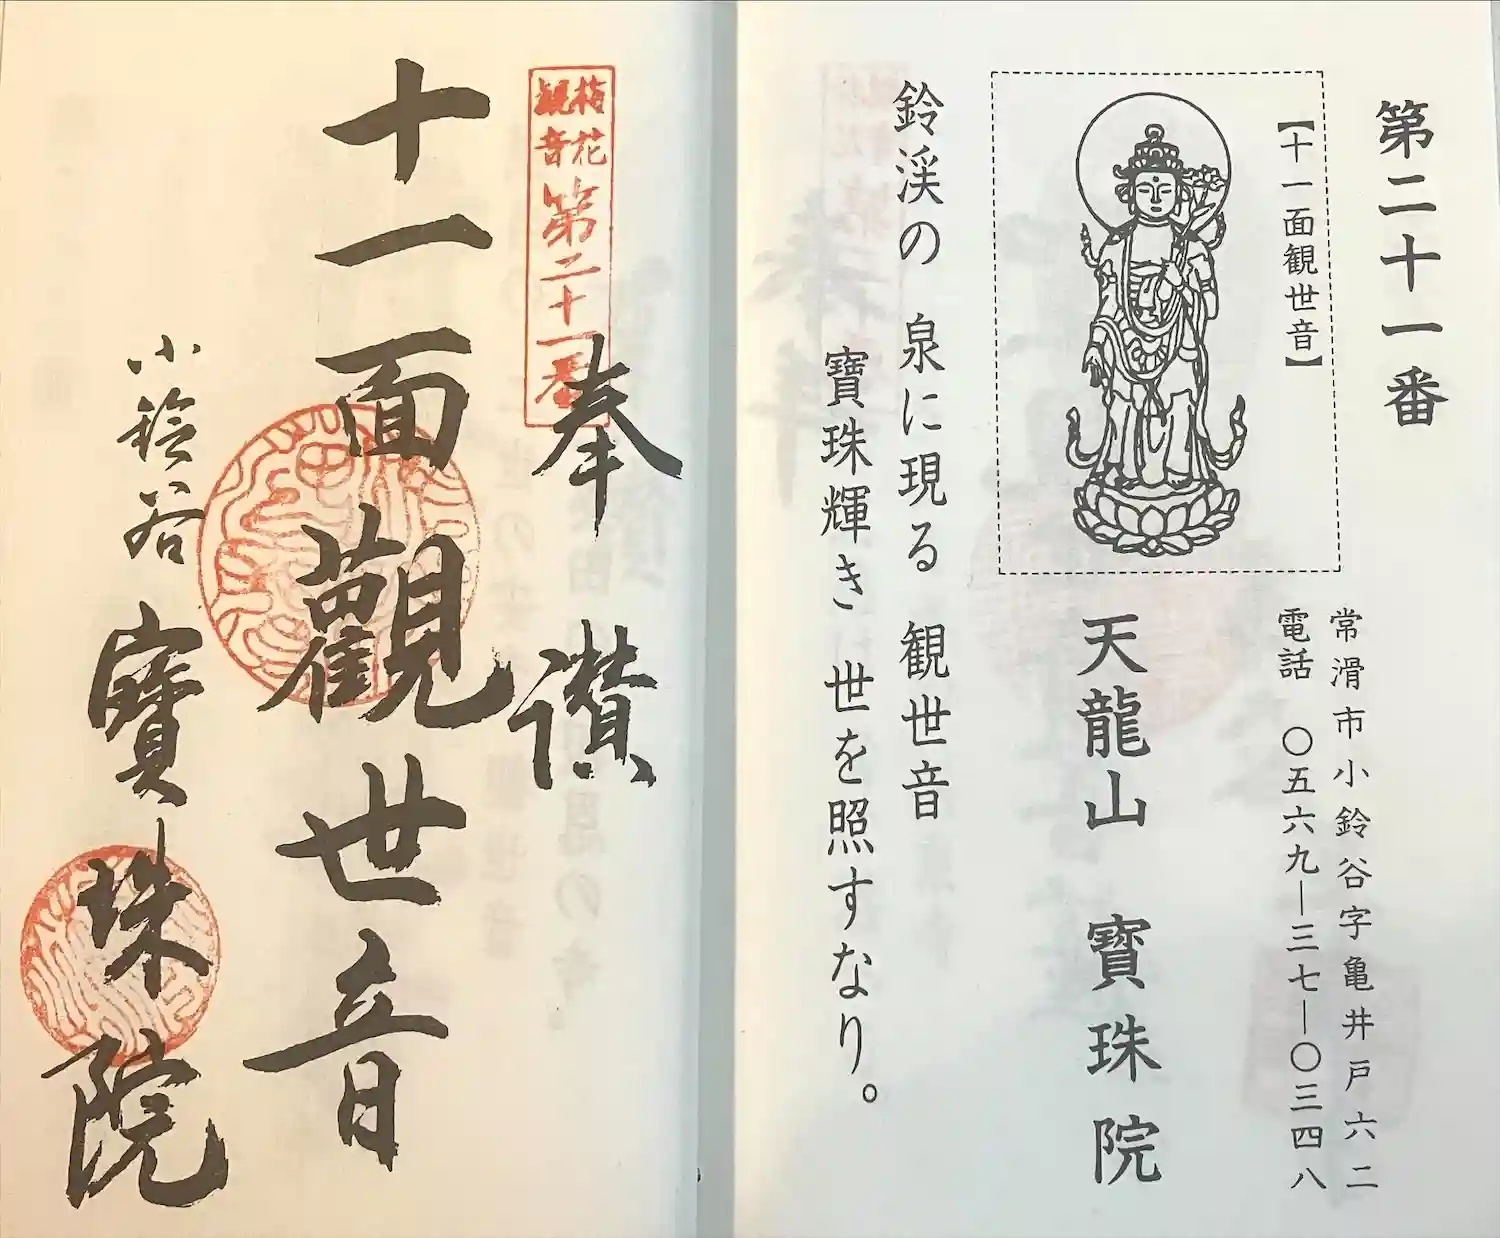 第二十一番
【十一面観世音】
常滑市小鈴谷字亀井戸六二
電話 〇五六九―三七―〇三四八
天龍山 寶珠院
鈴渓の 泉に現る 観世音
寶珠輝き 世を照すなり。
梅花
観音
第二十一番
奉讃
十一面觀世音
小鈴谷 寳珠院